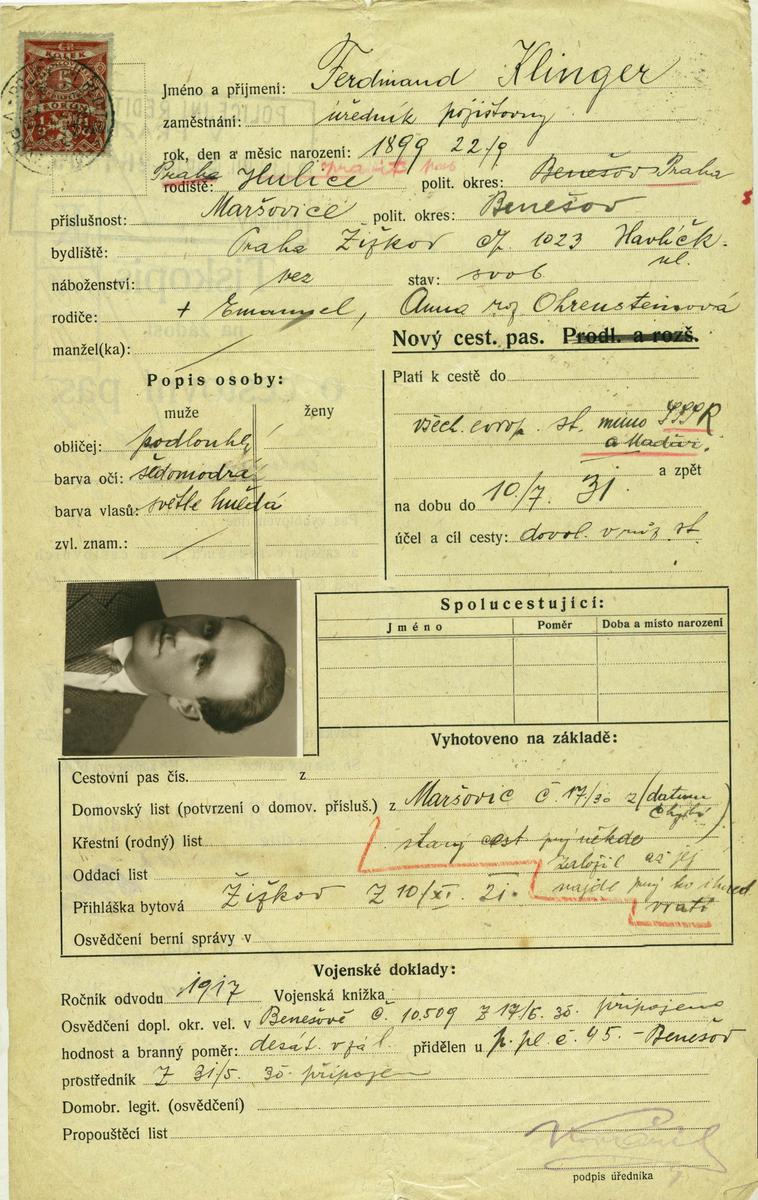 KOLEK
5
KORUN
Jméno a příjmení: Ferdinand Klinger
zaměstnání: úředník pojišťovny
rok, den a měsíc narození: 1899 22/9
Praha
rodiště: Hulice polit. okres: Benešov Praha
příslušnost: Maršovice polit. okres: Benešov
bydliště: Praha Žižkov čp. 1023 Havlíčk. ul.
náboženství: bez stav: svob
rodiče: + Emanuel, Anna roz Ohrensteinová
manžel(ka): /
Nový cest. pas. Prodl. a rozš.
Popis osoby:
muže ženy
obličej: podlouhlý
barva očí: šedomodrá
barva vlasů: světle hnědá
zvl. znam.: /
Platí k cestě do
všech. evrop. st. mimo SSSR
a Maďar.
a zpět
na dobu do 10/7. 31.
účel a cíl cesty: dovol. v růz. st.
Spolucestující:
Jméno Poměr Doba a místo narození
Vyhotoveno na základě:
Cestovní pas čís. z
Domovský list (potvrzení o domov. přísluš.) z Maršovic č. 17/30 z (datum chybí)
Křestní (rodný) list starý cest prý někde
založil až jej
Oddací list
najde prý ho ihned
vrátí
Přihláška bytová Žižkov Z 10/XI. 21.
Osvědčení berní správy v
Vojenské doklady:
Ročník odvodu 1917 Vojenská knížka
Osvědčení dopl. okr. vel. v Benešově č. 10.509 Z 17/6. 30. připojeno
hodnost a branný poměr: desát. v zál. přidělen u p. pl. č. 45. - Benešov
prostředník Z 31/5. 30. připojen
Domobr. legit. (osvědčení)
Propouštěcí list
podpis úředníka